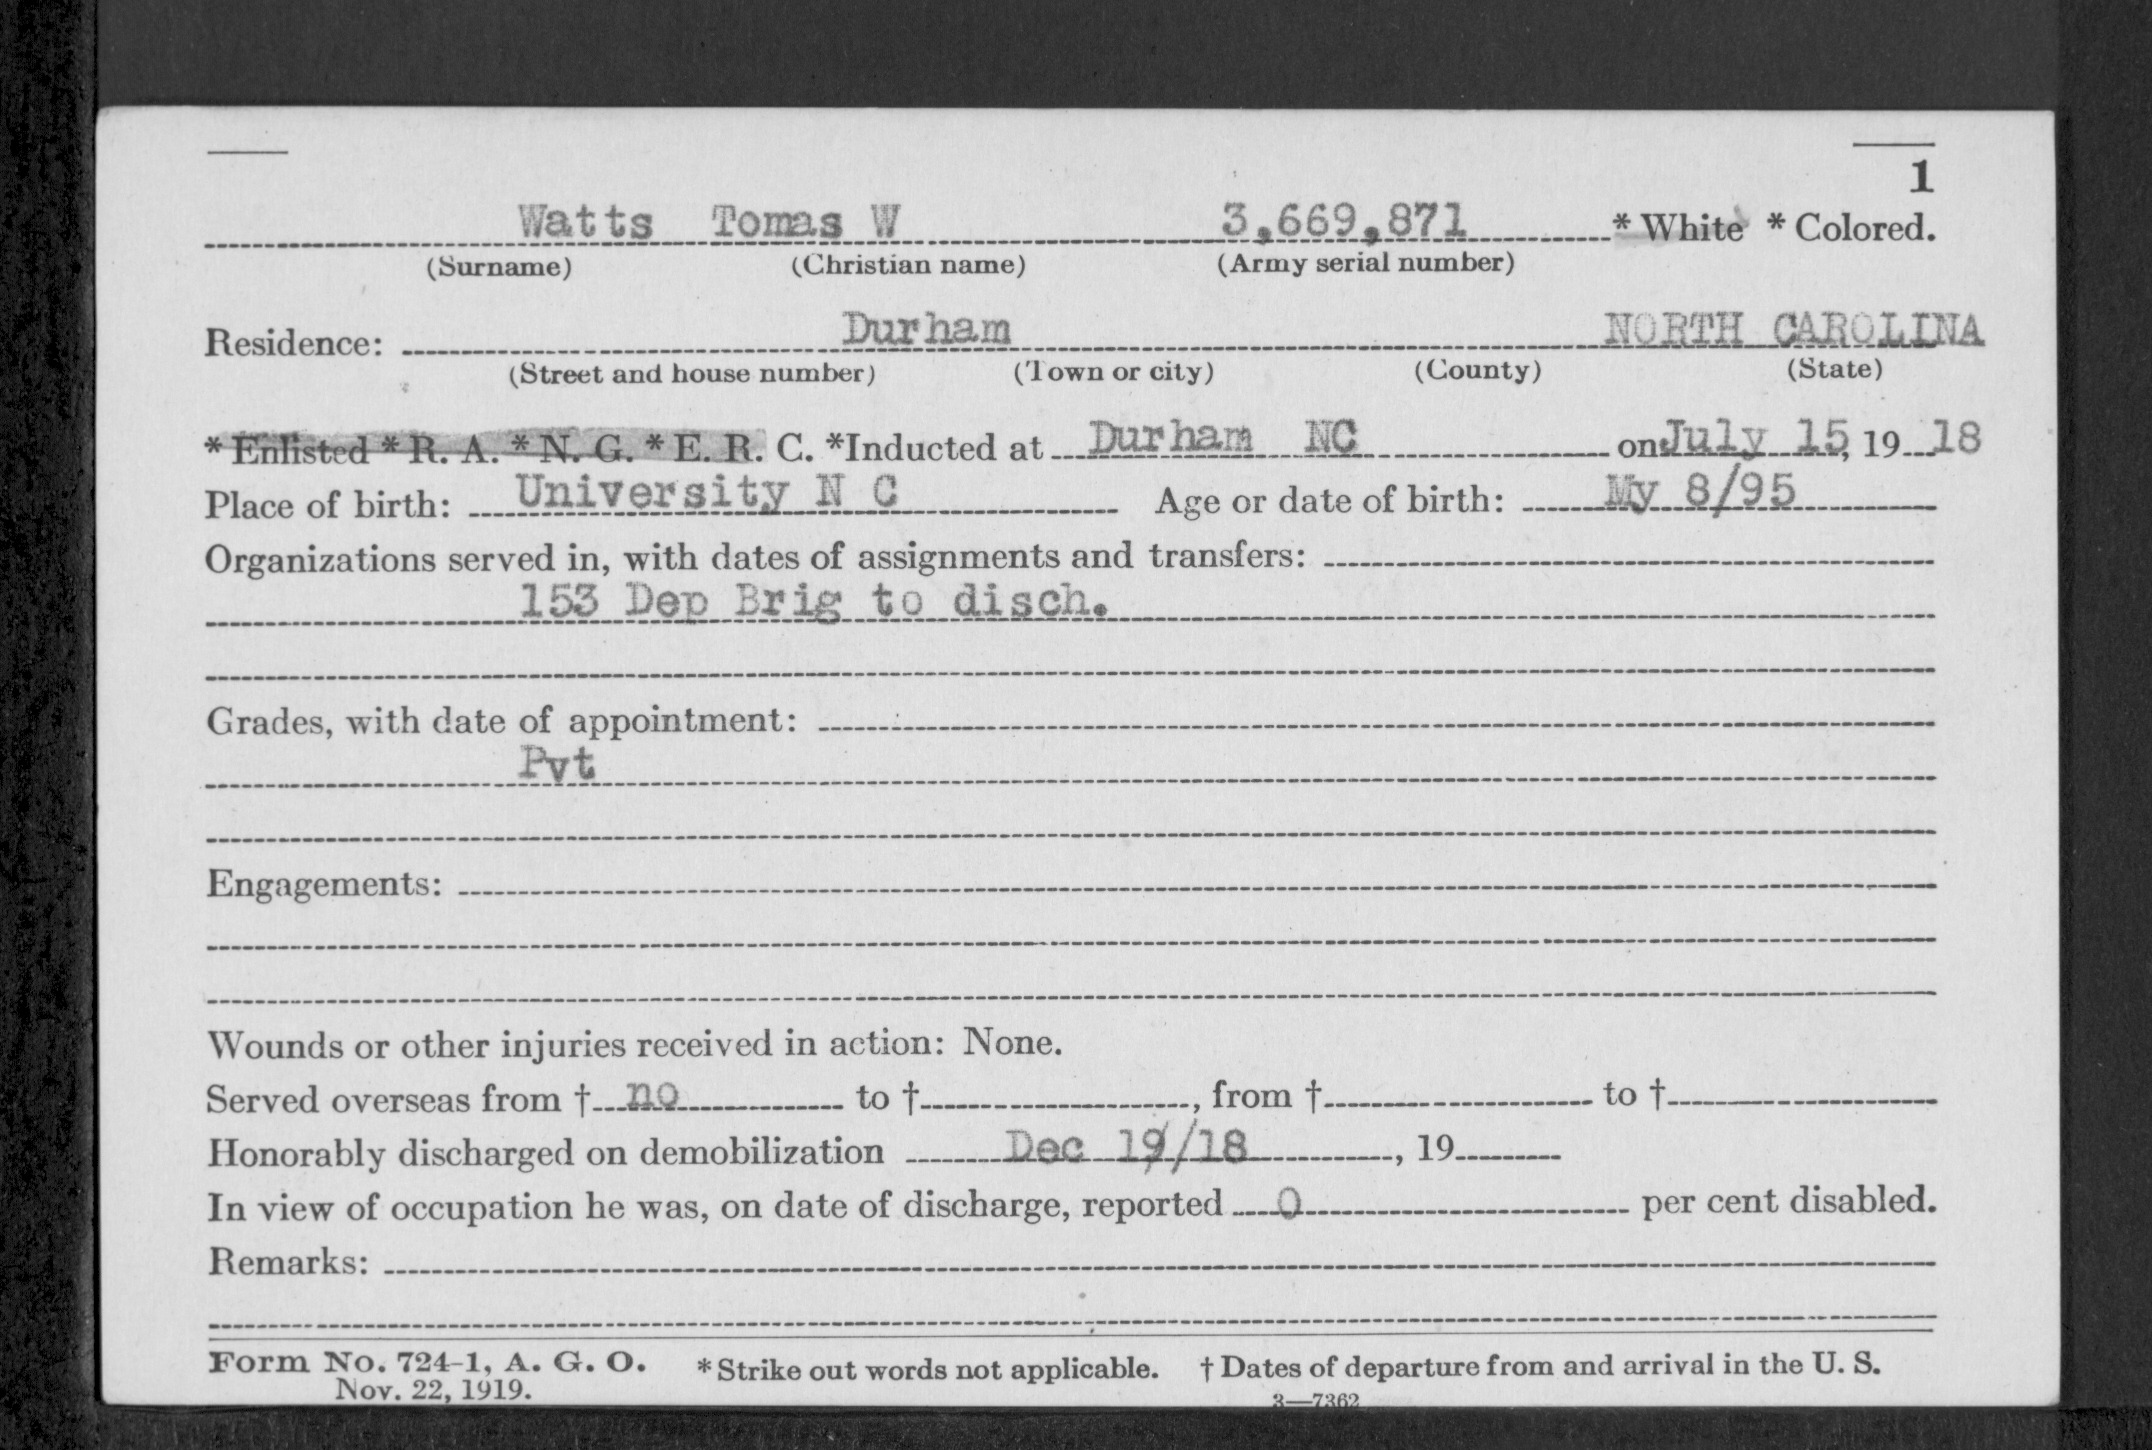 1
Watts Tomas W 3,669,871 * White * Colored.
(Surname) (Christian name) (Army serial number)
Residence: Durham NORTH CAROLINA
(Street and house number) (Town or city) (County) (State)
* Enlisted * R. A. * N. G. * E. R. C. *Inducted at Durham NC on July 15, 19 18
Place of birth: University N C Age or date of birth: My 8/95
Organizations served in, with dates of assignments and transfers:
153 Dep Brig to disch.
Grades, with date of appointment:
Pvt
Engagements:
Wounds or other injuries received in action: None.
Served overseas from † no to † , from † to †
Honorably discharged on demobilization Dec 19/18 , 19
In view of occupation he was, on date of discharge, reported 0 per cent disabled.
Remarks:
Form No. 724-1, A. G. O. * Strike out words not applicable. † Dates of departure from and arrival in the U. S.
Nov. 22, 1919. 3—7362